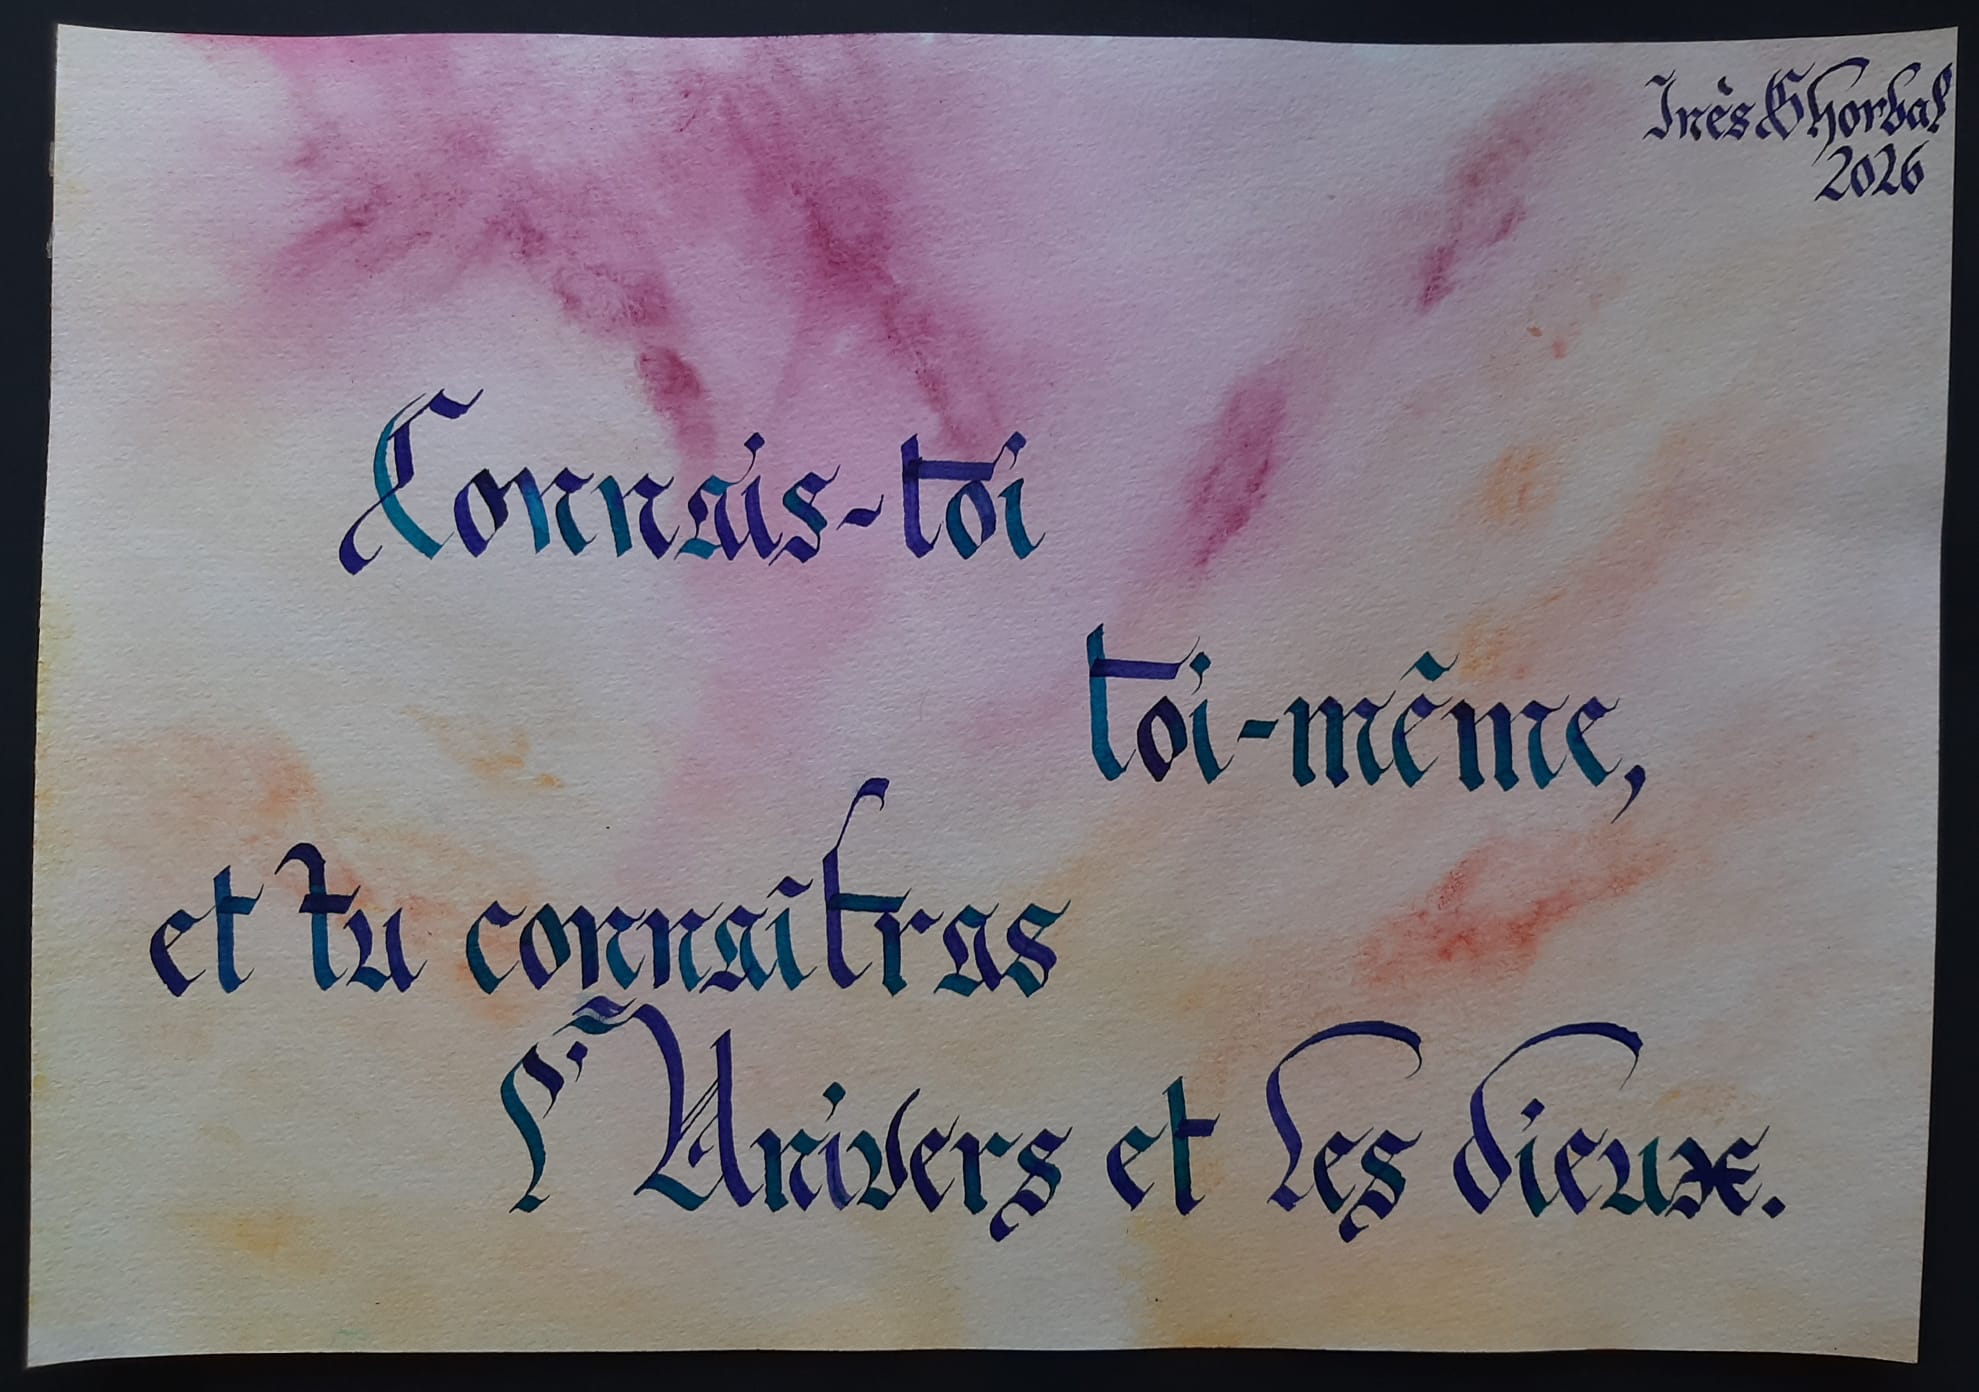 Inès Ghorbal
2026
Connais-toi
toi-même,
et tu connaîtras
l'Univers et les dieux.